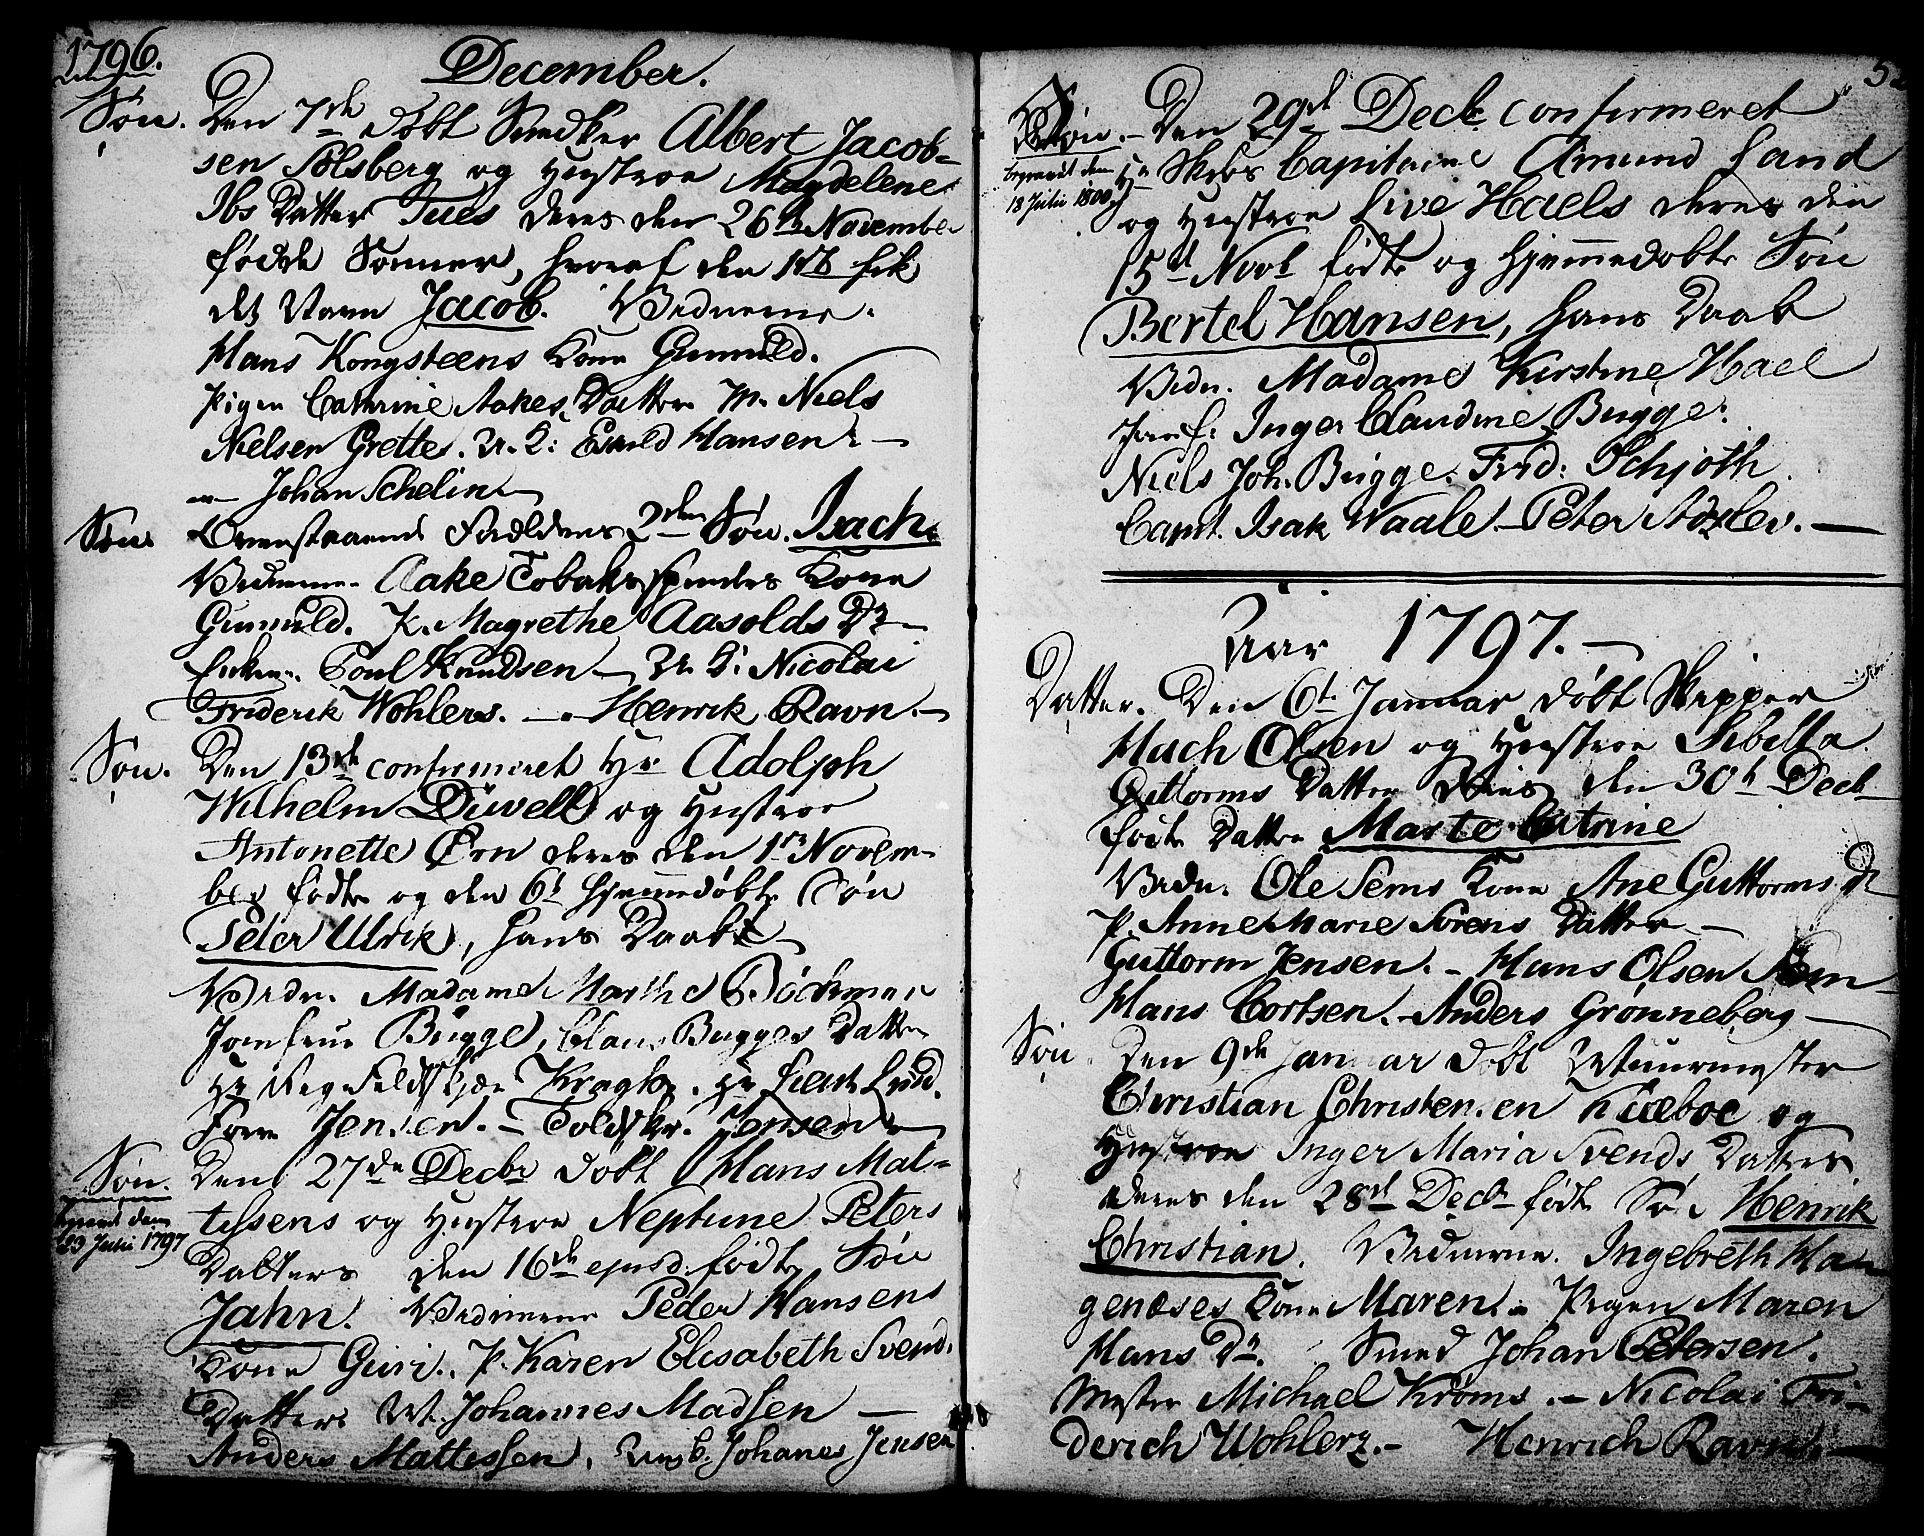 1796.
December.
Søn. Den 7de døbt Snedker Albert Jacob-
sen Solsberg og Hustroe Magdelene
Ibs Datter Tues deres den 26de November
fødde Sønner, hvoraf den 1ste fik
det Navn Jacob. Vidnerne.
Hans Kongsteens Kone Gunnild.
Pigen Cathrine Aakes Datter M. Niels
Nielsen Grette. U. K: Evald Hansen
Johan Schelin
Søn Ovenstaaende Forældres 2den Søn. Isach.
Vidnerne. Aake Tobakspinders Kone
Gunnild. P. Magrethe Aasolds Dr
Poul Knudsen U. K: Nicolai
Friderik Wohlers. Henrik Ravn.
Søn. Den 13de confirmeret Hr Adolph
Wilhelm Düvell og Hustroe
Antonette Ørn deres den 1ste Novem-
ber fødte og den 6t hjemmedøbte Søn
Peter Ulrik, hans Daab
Vidn. Madame Marthe Böckman
Jomfrue Bugge, Claus Bugges Datter
Hr Reg. Feldskjær Kragh. Hr Lieut Lund.
Jensen. Toldskr. Jensen
Søn. Den 27de Decbr døbt Hans Mat-
begravet den
23 Julii 1797
tissens og Hustroe Neptune Peters
Datters den 16de ejusd. fødte Søn
Jahn. Vidnerne Peder Hansens
Kone Guri. P. Karen Elisabeth Svends
Datter U. Johannes Madssen
Anders Mattissen. Johanes Jensen
Søn. Den 29de Decb confirmeret
begravet den
18 Julii 1800
Hr Skibs Capitaine Amund Land
og Hustroe Live Haels deres den
15de Novb fødte og hjemmedøbte Søn
Bertel Hansen, hans Daab
Vidn. Madame Kirstine Hael
Jomf. Inger Claudine Bugge.
Niels Joh. Bugge. Frid: Schjøth.
Capit. Isak Waale. Peter Adzlev.
Aar 1797.
Datter. Den 6t Januar døbt Skipper
Mach Olsen og Hustroe Sibella
Guttorms Datter deres den 30t Decb
fødte Datter Marte Catrine
Vidn. Ole Sems Kone Ane Guttorms Dr
P. Anne Marie Sørens Datter
Guttorm Jensen. Hans Olsen Sem
Hans Cortsen. Anders Grønneberg
Søn. Den 9de Januar døbt Muurmester
Christian Christensen Kueboe og
Hustroe Inger Maria Svends Datter
deres den 28de Decb fødte Søn Henrik
Christian. Vidnerne. Ingebreth Ha-
genæses Kone Maren. Pigen Maren
Hans Dr. Smed Johan Petersen.
Mester Michael Krøms. Nicolai Fri-
derich Wohlerz. Henrich Ravn.